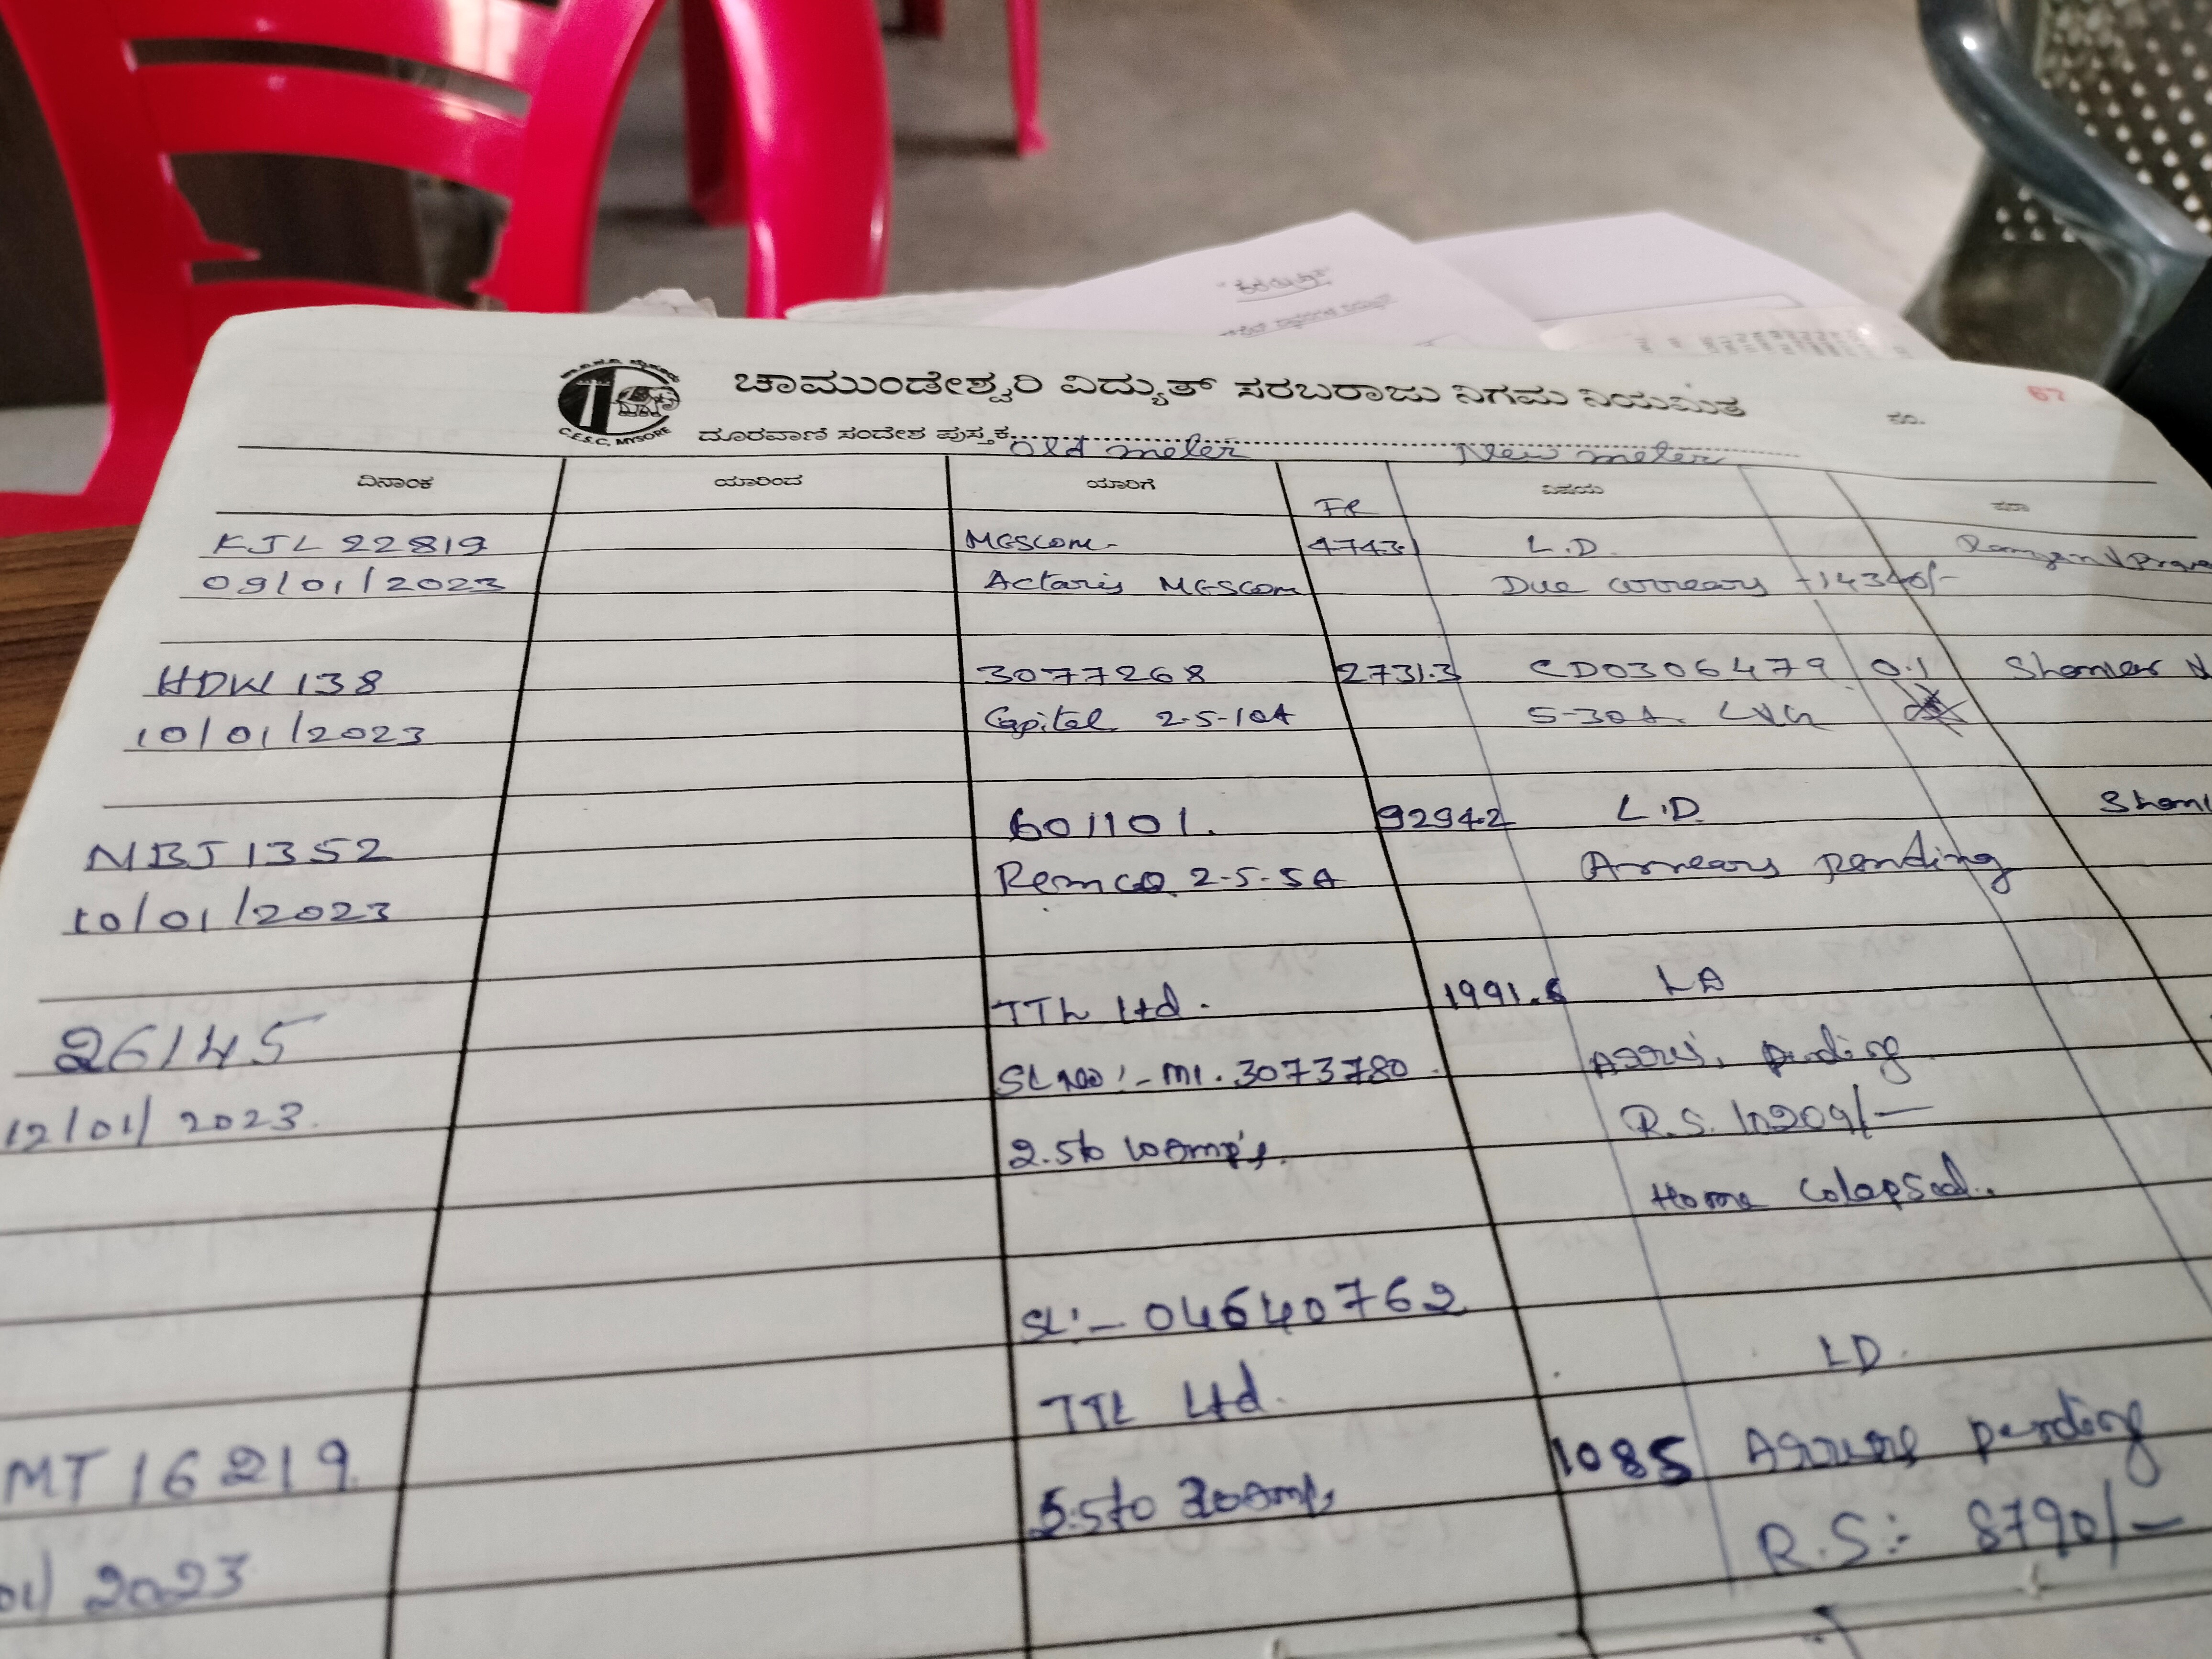 ಚಾಮುಂಡೇಶ್ವರಿ ವಿದ್ಯುತ್ ಸರಬರಾಜು ನಿಗಮ ನಿಯಮಿತ
67
C.E.S.C. MYSORE
ದೂರವಾಣಿ ಸಂದೇಶ ಪುಸ್ತಕ
ಸಂ.
Old meter New meter
ದಿನಾಂಕ ಯಾರಿಂದ ಯಾರಿಗೆ ವಿಷಯ ಷರಾ
FR
KJL 22819 MESCOM 4743 L.D.
09/01/2023 Actaris MESCOM Due arrears -14340/-
HDW 138 3077268 2731.3 CD0306479 0.1
10/01/2023 Capital 2.5-10A 5-30A. LVG
NBJ 1352 601101. 92942 L.D.
10/01/2023 Remco 2.5-5A Arrears pending
26145 TTL Ltd. 1991.6 LA
12/01/2023. SL NO:- M1.3073780 pending
2.5to 10Amp's. R.S. 10209/-
Home Colapsed.
SL:- 04640762
TTL Ltd. LD.
MT 16219 1085 pending
01/2023 R.S:- 8790/-